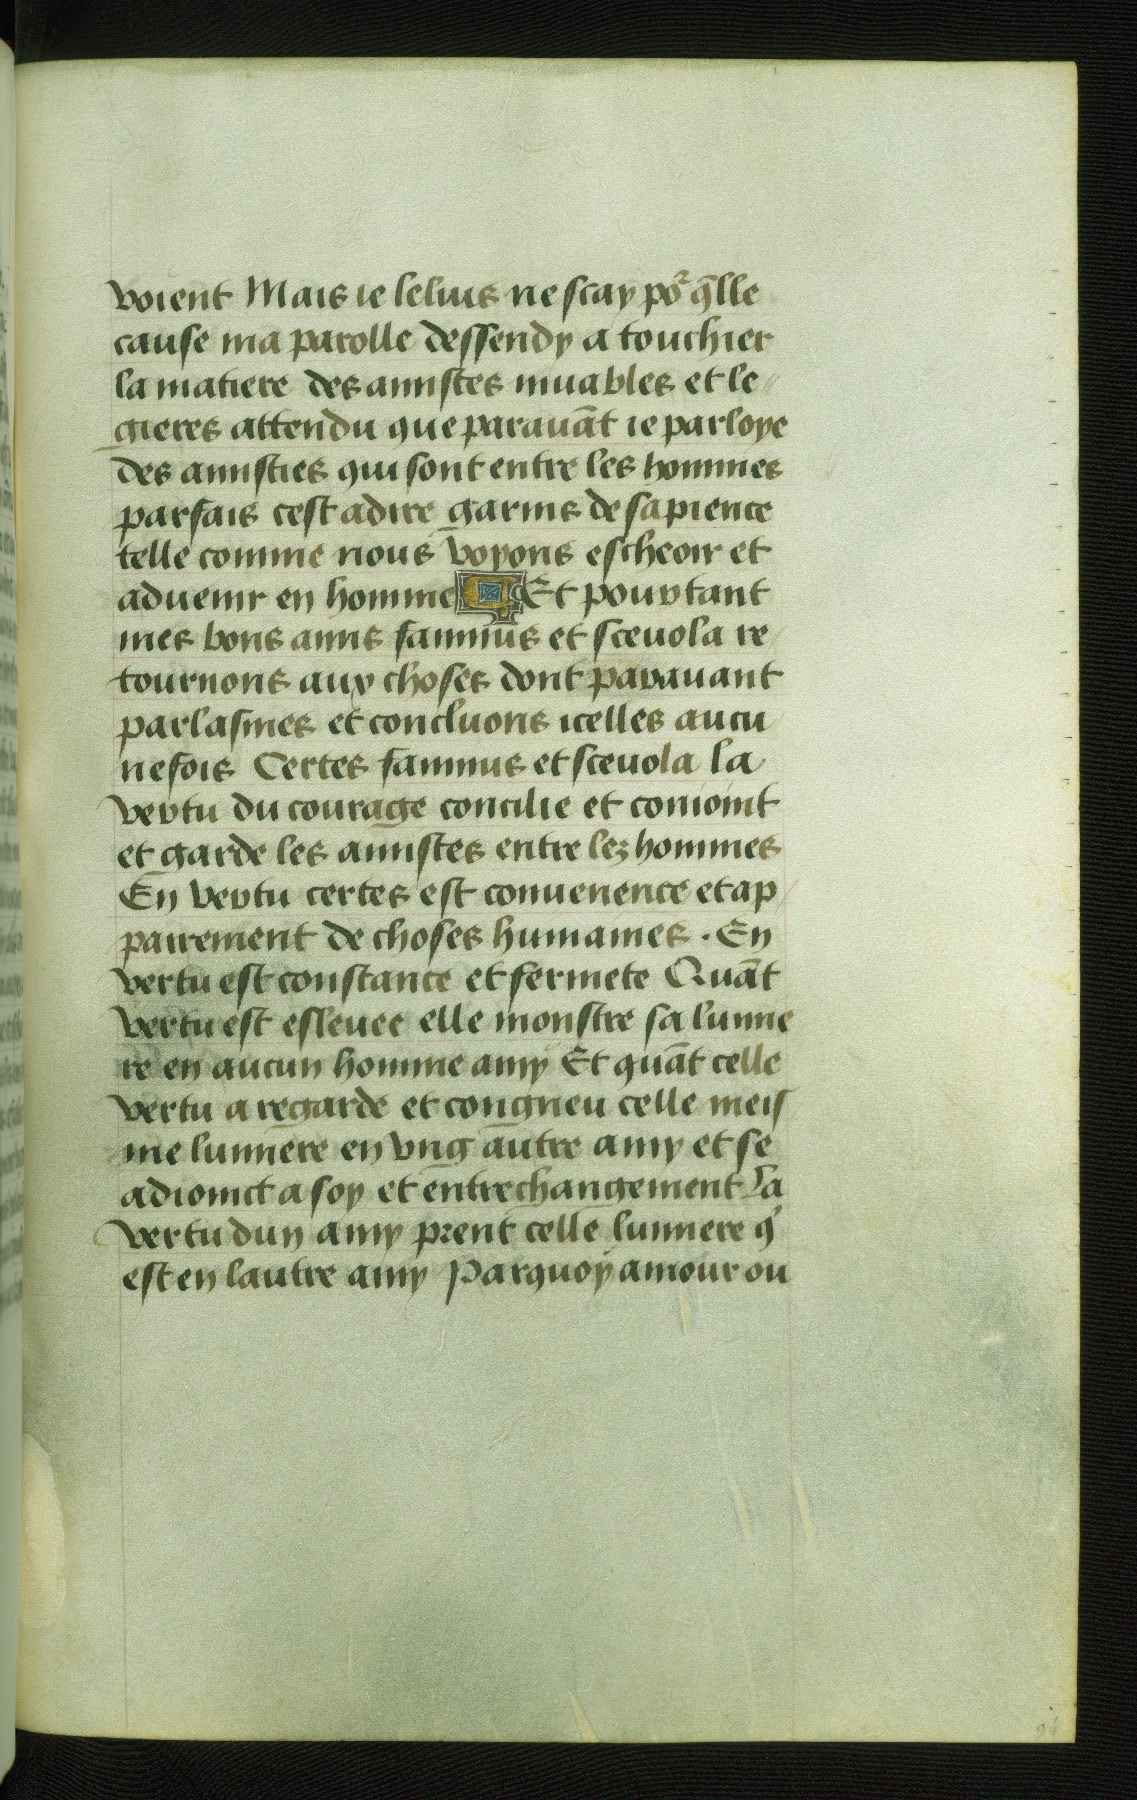 voient Mais ie lelius ne scay po͛ q̄lle
cause ma parolle dessendy a touchier
la matiere des amistes muables et le
gieres attendu que parauāt ie parloye
des amisties qui sont entre les hommes
parfais cest adire garnis de sapience
telle comme nous voyons escheoir et
aduenir en homme Et pourtant
mes bons amis fannius et sceuola re
tournons aux choses dont parauant
parlasmes et concluons icelles aucu
nefois Certes fannius et sceuola la
vertu du courage concilie et conioint
et garde les amistes entre lez hommes
En vertu certes est conuenence et ap
pairement de choses humaines . En
vertu est constance et fermete Quāt
vertu est esleuee elle monstre sa lumie
re en aucun homme amy Et quāt celle
vertu a regarde et congneu celle meis
me lumiere en vng autre amy et se
adioinct a soy et entrechangement la
vertu dun amy prent celle lumiere q̄
est en lautre amy Parquoy amour ou